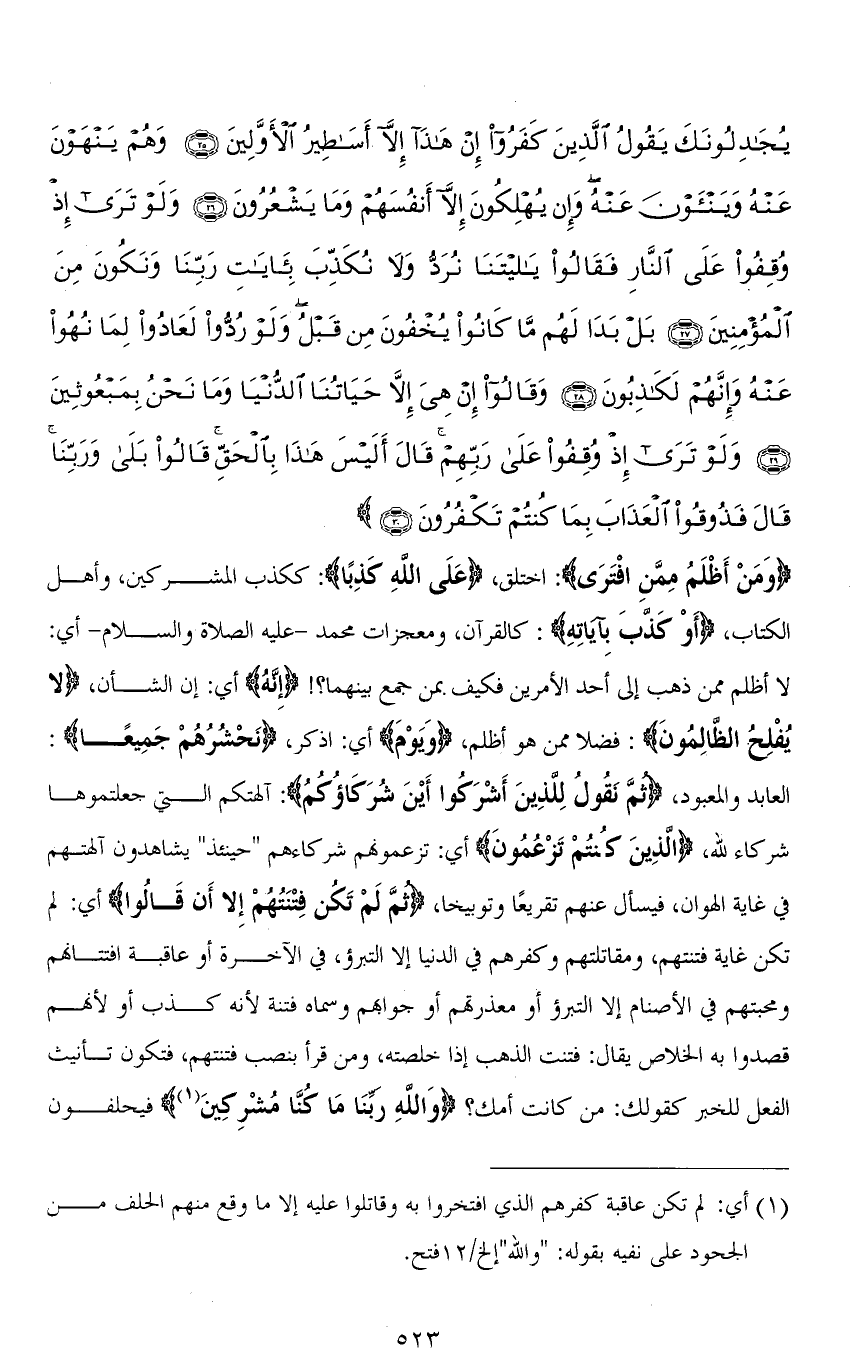 يُجَٰدِلُونَكَ يَقُولُ ٱلَّذِينَ كَفَرُوٓا۟ إِنْ هَٰذَآ إِلَّآ أَسَٰطِيرُ ٱلْأَوَّلِينَ ٢٥ وَهُمْ يَنْهَوْنَ
عَنْهُ وَيَنْـَٔوْنَ عَنْهُ ۖ وَإِن يُهْلِكُونَ إِلَّآ أَنفُسَهُمْ وَمَا يَشْعُرُونَ ٢٦ وَلَوْ تَرَىٰٓ إِذْ
وُقِفُوا۟ عَلَى ٱلنَّارِ فَقَالُوا۟ يَٰلَيْتَنَا نُرَدُّ وَلَا نُكَذِّبَ بِـَٔايَٰتِ رَبِّنَا وَنَكُونَ مِنَ
ٱلْمُؤْمِنِينَ ٢٧ بَلْ بَدَا لَهُم مَّا كَانُوا۟ يُخْفُونَ مِن قَبْلُ ۖ وَلَوْ رُدُّوا۟ لَعَادُوا۟ لِمَا نُهُوا۟
عَنْهُ وَإِنَّهُمْ لَكَٰذِبُونَ ٢٨ وَقَالُوٓا۟ إِنْ هِىَ إِلَّا حَيَاتُنَا ٱلدُّنْيَا وَمَا نَحْنُ بِمَبْعُوثِينَ
٢٩ وَلَوْ تَرَىٰٓ إِذْ وُقِفُوا۟ عَلَىٰ رَبِّهِمْ ۚ قَالَ أَلَيْسَ هَٰذَا بِٱلْحَقِّ ۚ قَالُوا۟ بَلَىٰ وَرَبِّنَا ۚ
قَالَ فَذُوقُوا۟ ٱلْعَذَابَ بِمَا كُنتُمْ تَكْفُرُونَ ٣٠ ﴾
﴿وَمَنْ أَظْلَمُ مِمَّنِ افْتَرَى﴾: اختلق، ﴿عَلَى اللَّهِ كَذِبًا﴾: ككذب المشركين، وأهل
الكتاب، ﴿أَوْ كَذَّبَ بِآيَاتِهِ﴾ : كالقرآن، ومعجزات محمد -عليه الصلاة والسلام- أي:
لا أظلم ممن ذهب إلى أحد الأمرين فكيف بمن جمع بينهما؟! ﴿إِنَّهُ﴾ أي: إن الشأن، ﴿لا
يُفْلِحُ الظَّالِمُونَ﴾ : فضلا ممن هو أظلم، ﴿وَيَوْمَ﴾ أي: اذكر، ﴿نَحْشُرُهُمْ جَمِيعًا﴾ :
العابد والمعبود، ﴿ثُمَّ نَقُولُ لِلَّذِينَ أَشْرَكُوا أَيْنَ شُرَكَاؤُكُمُ﴾: آلهتكم التي جعلتموها
شركاء لله، ﴿الَّذِينَ كُنتُمْ تَزْعُمُونَ﴾ أي: تزعمونهم شركاءهم "حينئذ" يشاهدون آلهتهم
في غاية الهوان، فيسأل عنهم تقريعًا وتوبيخا، ﴿ثُمَّ لَمْ تَكُن فِتْنَتُهُمْ إِلا أَن قَالُوا﴾ أي: لم
تكن غاية فتنتهم، ومقاتلتهم وكفرهم في الدنيا إلا التبرؤ، في الآخرة أو عاقبة افتتانهم
ومحبتهم في الأصنام إلا التبرؤ أو معذرتهم أو جوابهم وسماه فتنة لأنه كذب أو لأنهم
قصدوا به الخلاص يقال: فتنت الذهب إذا خلصته، ومن قرأ بنصب فتنتهم، فتكون تأنيث
الفعل للخبر كقولك: من كانت أمك؟ ﴿وَاللَّهِ رَبِّنَا مَا كُنَّا مُشْرِكِينَ(١)﴾ فيحلفون
(١) أي: لم تكن عاقبة كفرهم الذي افتخروا به وقاتلوا عليه إلا ما وقع منهم الحلف من
الجحود على نفيه بقوله: "والله"إلخ/١٢فتح.
٥٢٣